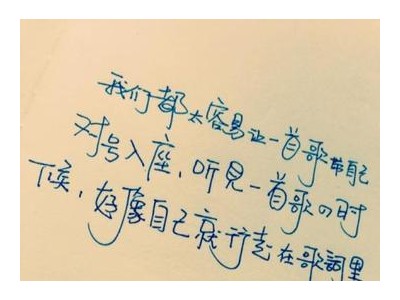 我们都太容易让一首歌帮自己
对号入座,听見一首歌の时
候,好像自己就行走在歌詞里